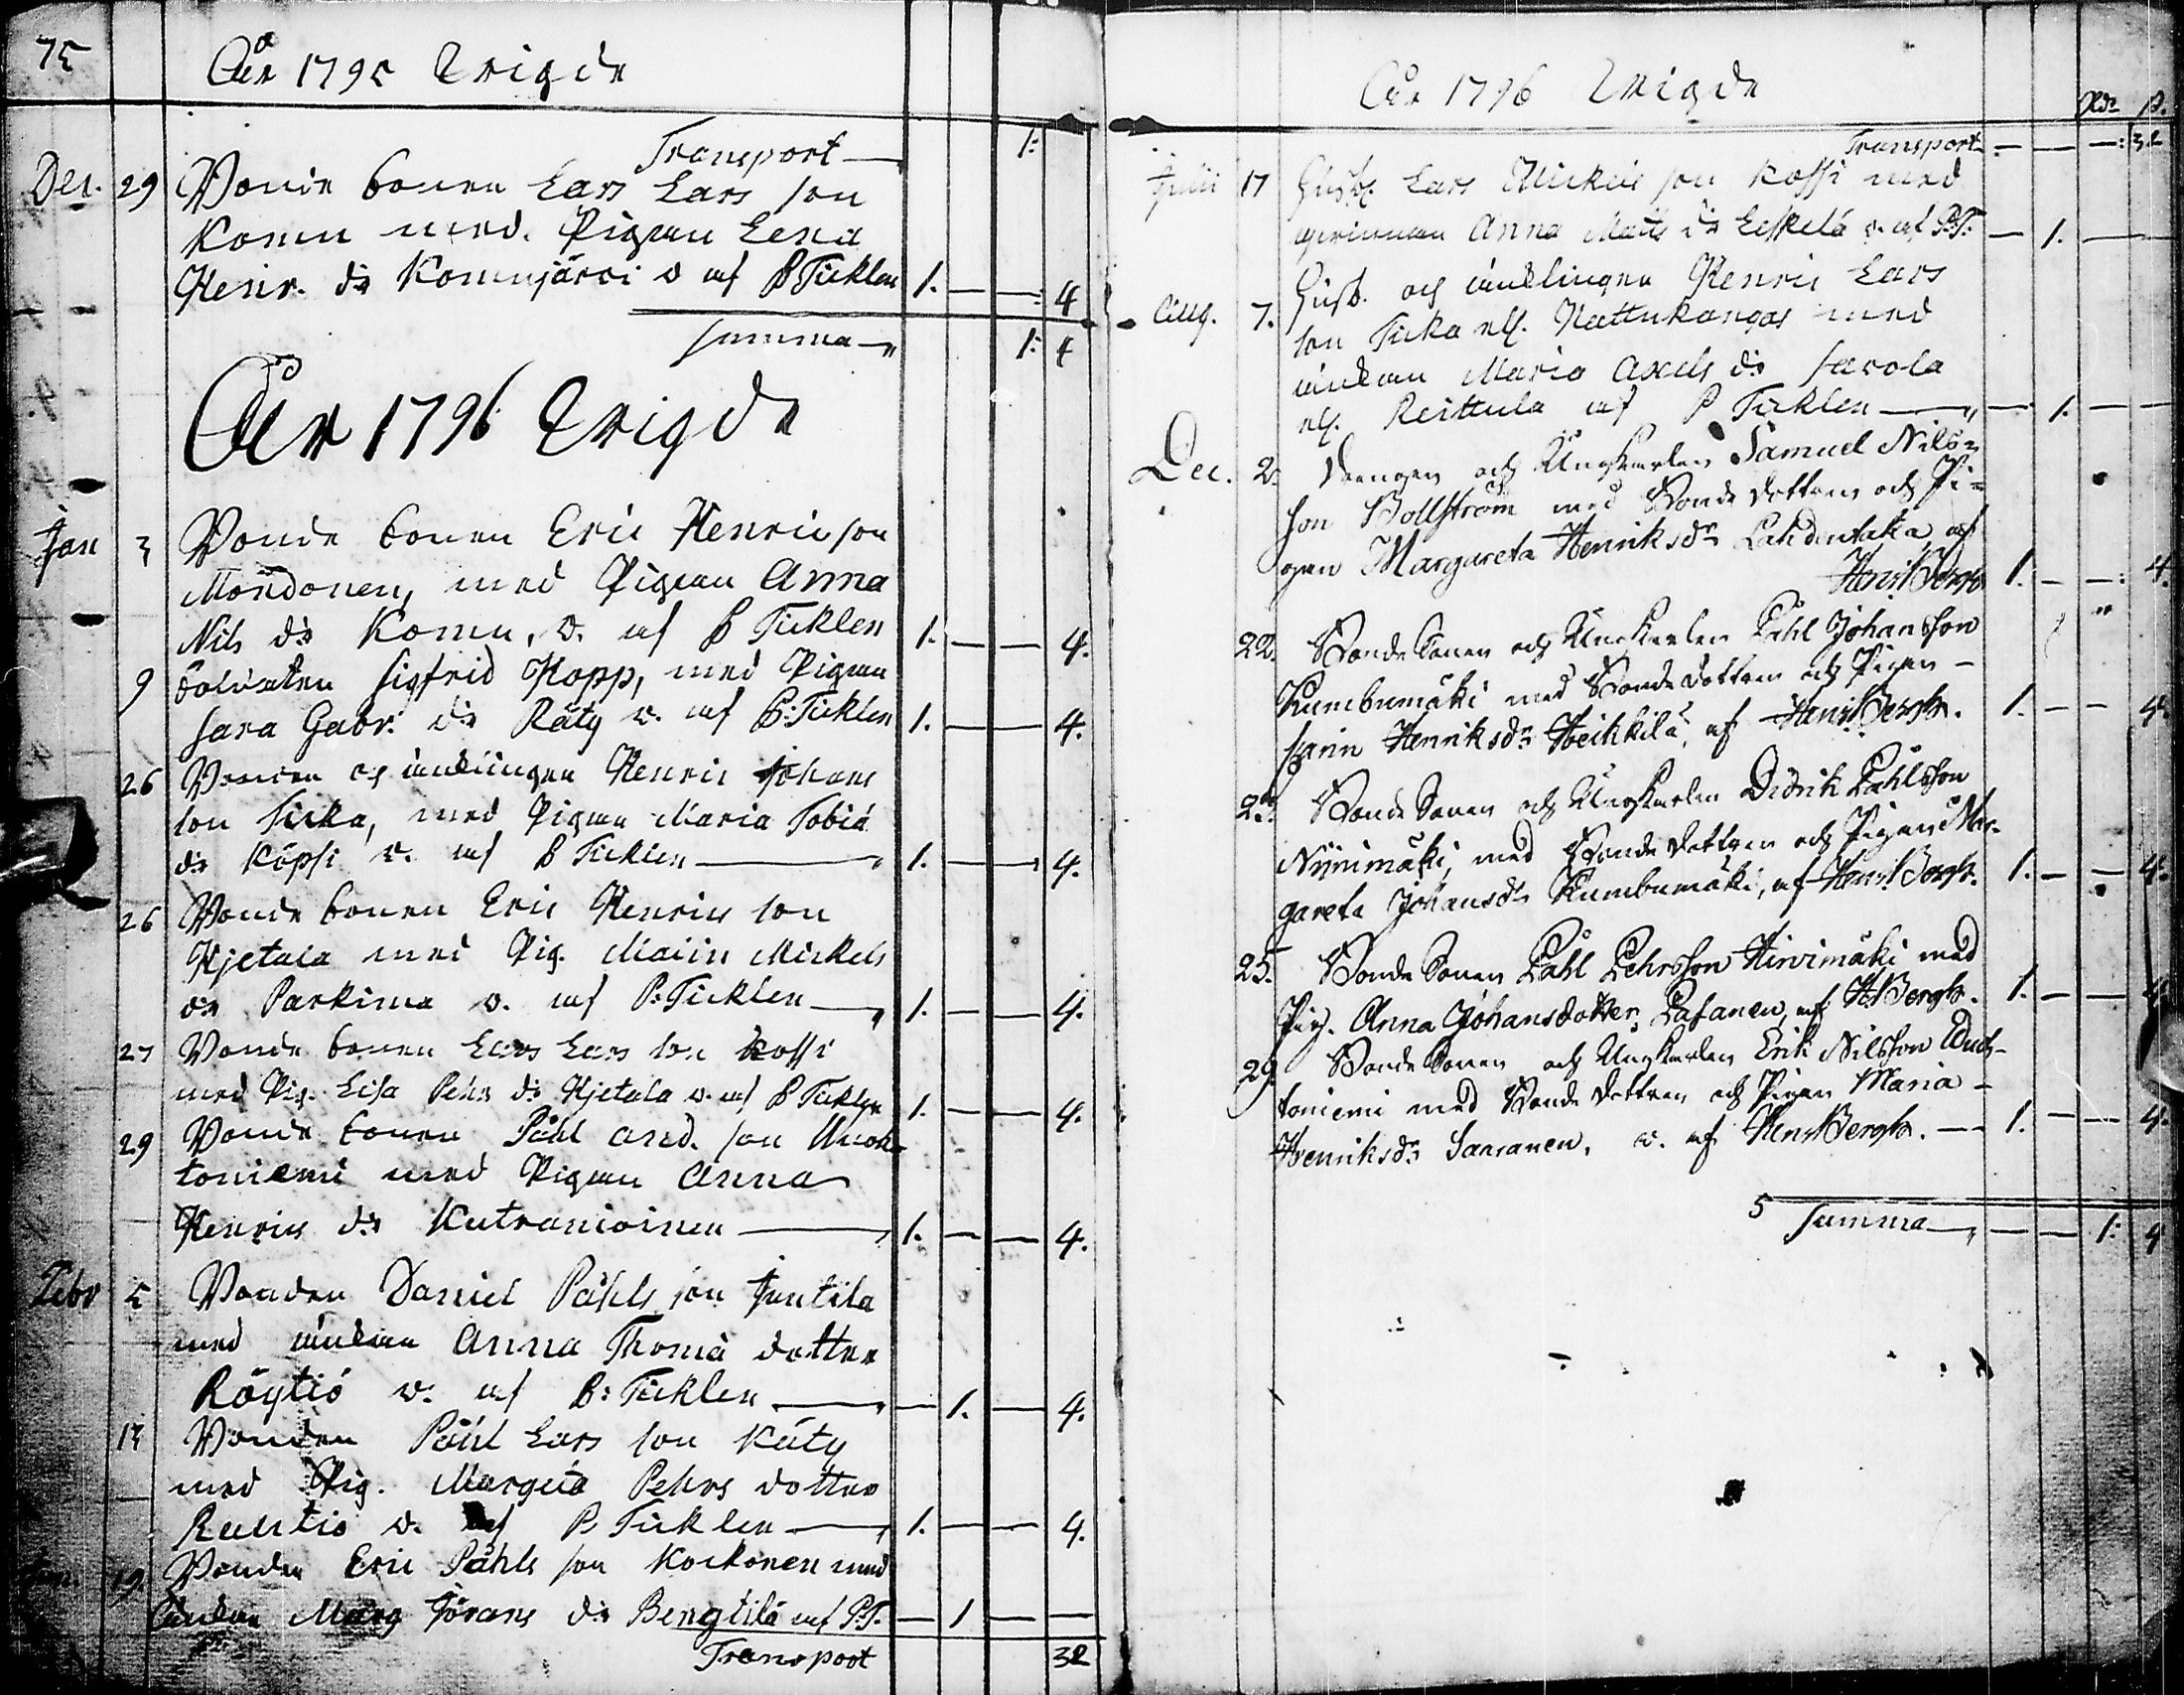 75
År 1795 Wigde
Transport — 1:
Dec. 29 Bonde sonen Lars Lars son
Komu med Pigan Lena
Henr. dr Komujärvi v af P Ticklen 1. — — 4
summa — 1: 4
År 1796 Wigde
Jan 3 Bonde sonen Eric Henric son
Moñdonen, med Pigan Anna
Nils dr Komu, v. af P Ticklen 1. — — 4.
9 Soldaten Sigfrid Kopp, med Pigan
Sara Gabr. dr Räty v. af P: Ticklen 1. — — 4.
26 Bonden och änklingen Henric Johans
son Ticka, med Pigan Maria Tobiæ
dr Köpsi v. af P Ticklen — 1. — — 4.
26 Bonde sonen Eric Henrics son
Hjetala med Pig. Malin Mickels
dr Parkima v. af P: Ticklen — 1. — — 4.
27 Bonde sonen Lars Lars son Kossi
med Pig. Lisa Pehrs dr Hjetala v. af P Ticklen 1. — — 4.
29 Bonde sonen Påhl And. son Uuok-
toniemi med Pigan Anna
Henrics dr Kutraniöinen — 1. — — 4.
Febr 5 Bonden Daniel Påhls son Juntila
med änkan Anna Thomæ dotter
Röytiö v. af P: Ticklen — — 1. — 4.
14 Bonden Påhl Lars son Käty
med Pig. Margeta Pehrs dotter
Ruutio v. af P. Ticklen — 1. — — 4.
19. Bonden Eric Påhls son Kockonen med
änkan Marg Jörans dr Bengtilä af P.T. — 1 — —
Transport 32
År 1796 Wigde
Rdr s.
Transport — — —: 32
Julii 17 Husb. Lars Mickels son Kossi med
qwinnan Anna Matts dr Leskelä v. af P.T. — 1. —
Aug. 7. Husb. och änklingen Henric Lars
son Ticka ell. Nattukangas med
änkan Maria Axels dr Sarola
ell. Reittula af P Ticklen — — 1. — —
Dec. 2. Drengen och Ungkarlen Samuel Nils-
son Bollström med Bonde dottren och Pi-
gan Margareta Henriksdr Lahdentaka, af
Henr. Bergh 1. — —: 4.
22. Bonde Sonen och Ungkarlen Påhl Johansson
Kumbumäki med Bonde dottren och Pigan —
Carin Henriksdr Heikkilä, af Henr. Bergh. 1. — — 4.
23. Bonde Sonen och Ungkarlen Didrik Påhlsson
Niinimäki, med Bonde dottren och Pigan Mar-
gareta Johansdr Kumbumäki, af Henr. Bergh. 1. — — 4.
25. Bonde Sonen Påhl Pehrsson Hirvimäki med
Pig. Anna Johansdotter Pasanen, af H Bergh. 1. — — 4.
29. Bonde Sonen och Ungkarlen Erik Nilsson Uuok-
toniemi med Bonde dottren och Pigan Maria —
Henriksdr Saxanen, v. af Henr Bergh. — 1. — — 4.
5 Summa — — — 1: 4